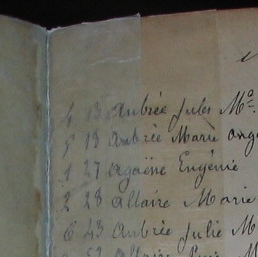 4 13 Aubrée Jules Mo.
5 19 Aubrée Marie Ang
1 27 Agaësse Eugénie
2 28 Allaire Marie
6 43 Aubrée Julie M
52 Allaire